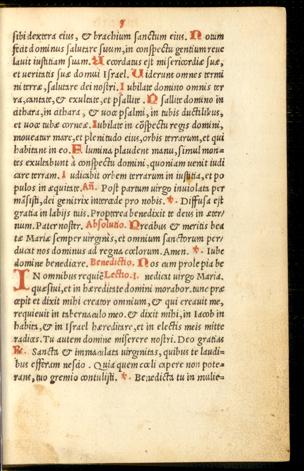 sibi dextera eius, & brachium sanctum eius. Notum
fecit dominus salutare suum, in conspectu gentium reue
lauit iustitiam suam. Recordatus est misericordiæ suæ,
et veritatis suæ domui Israel. Viderunt omnes termi
ni terræ, salutare dei nostri. Iubilate domino omnis ter
ra, cantate, & exultate, et psallite. Psallite domino in
cithara, in cithara, & voce psalmi, in tubis ductilibus,
et voce tubæ corneæ. Iubilate in cōspectu regis domini,
moueatur mare, et plenitudo eius, orbis terrarum, et qui
habitant in eo. Flumina plaudent manu, simul mon=
tes exultabunt à conspectu domini, quoniam venit iudi
care terram. Iudicabit orbem terrarum in iustitia, et po
pulos in æquitate. Añ. Post partum virgo inuiolata per
māsisti, dei genitrix intercede pro nobis. ℣. Diffusa est
gratia in labijs tuis. Propterea benedixit te deus in æter
num. Pater noster. Absolutio. Precibus & meritis bea
tæ Mariæ semper virginis, et omnium sanctorum per
ducat nos dominus ad regna cœlorum. Amen. ℣. Iube
domne benedicere. Benedictio. Nos cum prole pia be
IN omnibus requiē Lectio.1. nedicat virgo Maria.
quæsiui, et in hæreditate domini morabor. tunc præ
cæpit et dixit mihi creator omnium, & qui creauit me,
requieuit in tabernaculo meo. & dixit mihi, in Iacob in
habita, & in Israel hæreditare, et in electis meis mitte
radices. Tu autem domine miserere nostri. Deo gratias
℟. Sancta & immaculata virginitas, quibus te laudi=
bus efferam nescio. Quia quem cœli capere non pote=
rant, tuo gremio contulisti. ℣. Benedicta tu in mulie=